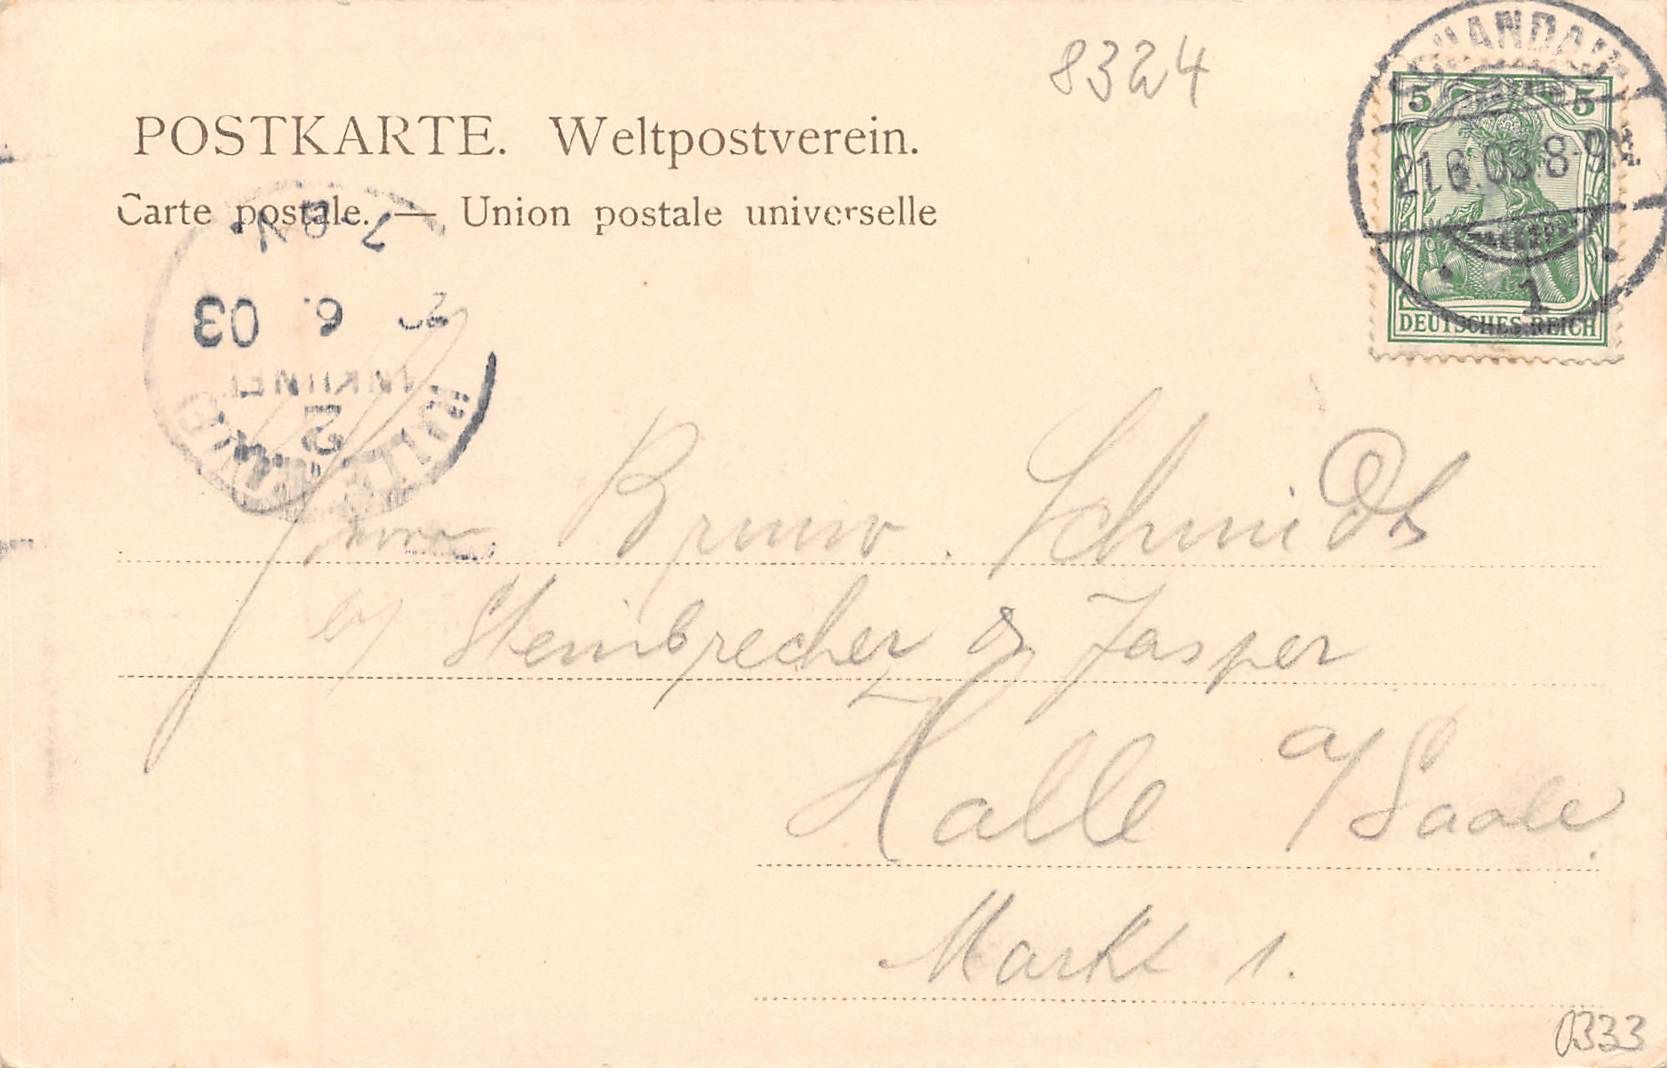 8324
POSTKARTE. Weltpostverein.
Carte postale. — Union postale universelle
SCHANDAU
5 5
21.6.03.8-9V.
1
DEUTSCHES REICH
7-8V.
6. 03
2
Herrn Bruno Schmidt
b/ Steinbrecher & Jasper
Halle a/Saale.
Markt 1.
0333